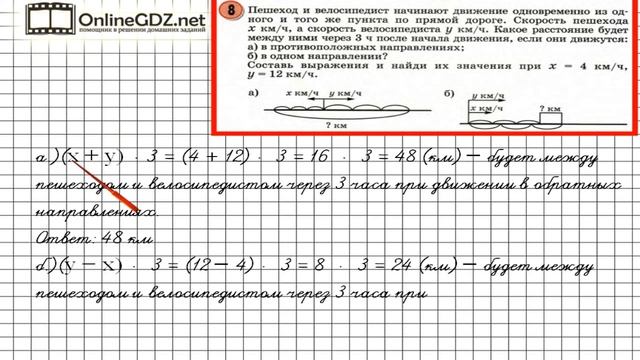 OnlineGDZ.net
помощник в решении домашних заданий
8
Пешеход и велосипедист начинают движение одновременно из од-
ного и того же пункта по прямой дороге. Скорость пешехода
x км/ч, а скорость велосипедиста y км/ч. Какое расстояние будет
между ними через 3 ч после начала движения, если они движутся:
а) в противоположных направлениях;
б) в одном направлении?
Составь выражения и найди их значения при x = 4 км/ч,
y = 12 км/ч.
а) x км/ч y км/ч
? км
б) y км/ч
x км/ч ? км
а)(x + y) · 3 = (4 + 12) · 3 = 16 · 3 = 48 (км) — будет между
пешеходом и велосипедистом через 3 часа при движении в обратных
направлениях.
Ответ: 48 км
б)(y − x) 3 = (12 − 4) · 3 = 8 · 3 = 24 (км) — будет между
пешеходом и велосипедистом через 3 часа при